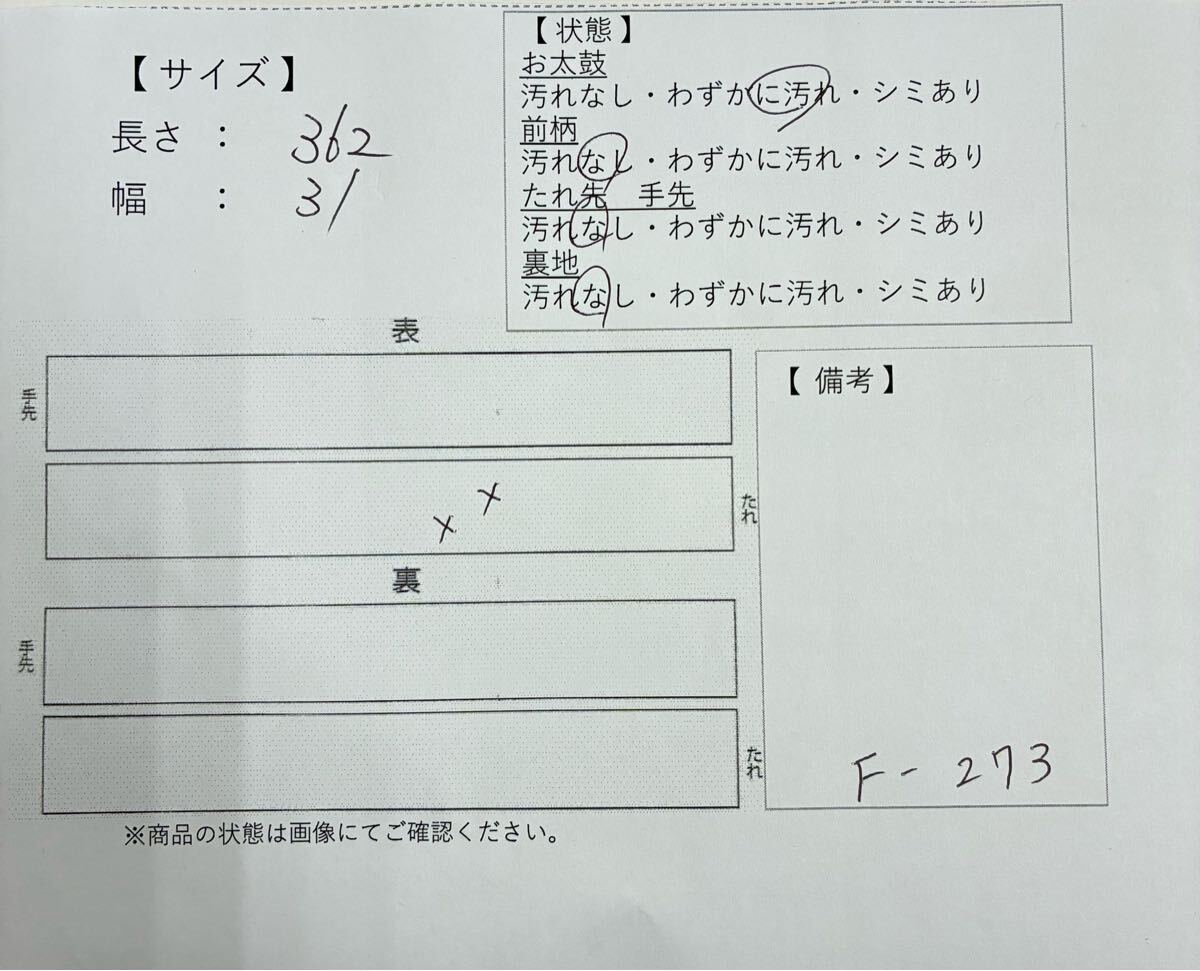 【サイズ】
長さ : 362
幅 : 31
【状態】
お太鼓
汚れなし・わずかに汚れ・シミあり
前柄
汚れなし・わずかに汚れ・シミあり
たれ先 手先
汚れなし・わずかに汚れ・シミあり
裏地
汚れなし・わずかに汚れ・シミあり
表
手先
× ×
たれ
裏
手先
たれ
【備考】
F-273
※商品の状態は画像にてご確認ください。